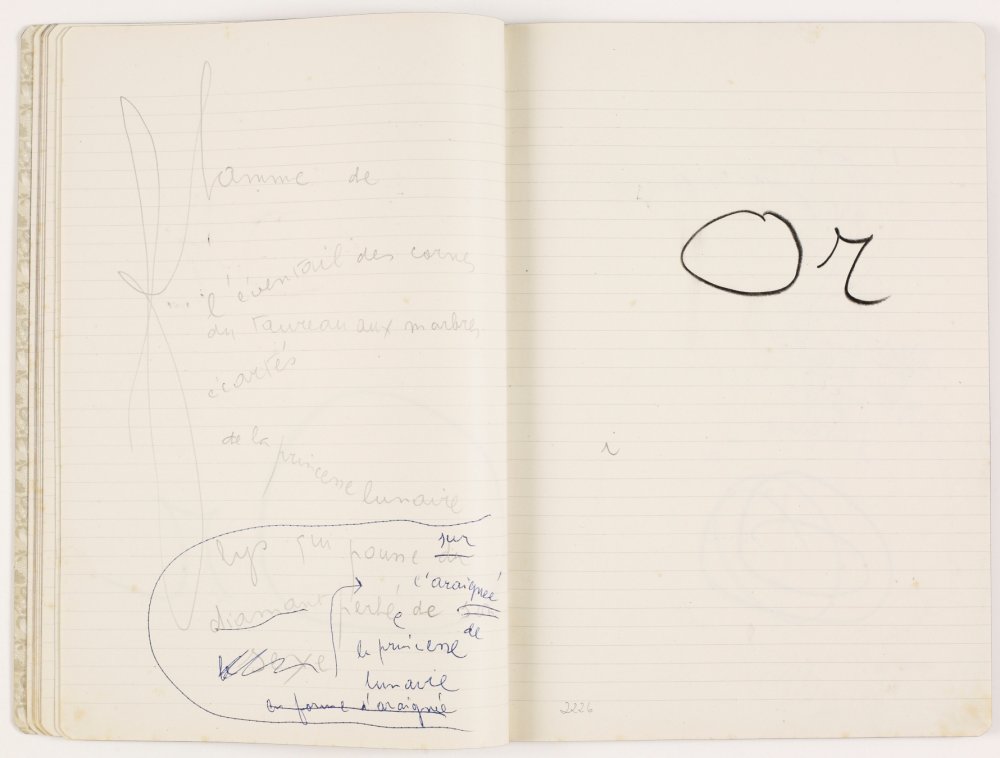 flamme de
l'éventail des cornes
du taureau aux marbres
écartés
de la princesse lunaire
sur
lys qui pousse du
l'araignée
diamant perlé de son
de
la princesse
sexe
lunaire
en forme d'araignée
Or
i
2226